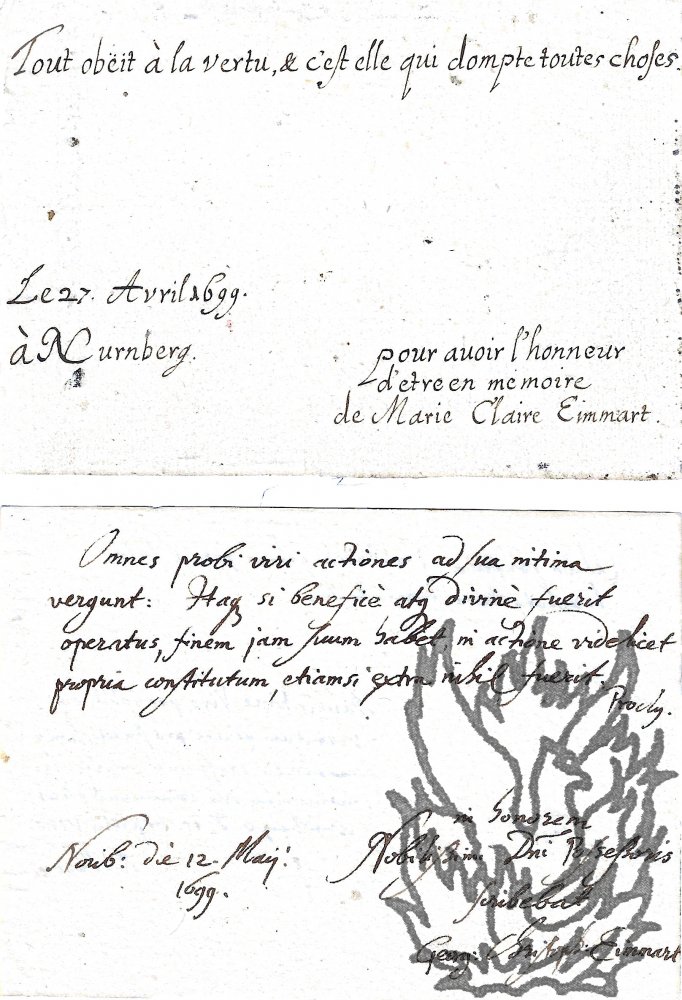 Tout obëit à la vertu, & c'est elle qui dompte toutes choses.
Le 27. Avril 1699.
à Nurnberg.
pour avoir l'honneur
d'etre en memoire
de Marie Claire Eimmart.
Omnes probi viri actiones ad sua intima
vergunt: Itaq si beneficè atq divinè fuerit
operatus, finem jam suum habet, in actione videlicet
propria constitutum, etiamsi extra nihil fuerit.
Procly.
in honorem
Nobilissimi Dni Possessoris
scribebat
Georg: Christoph: Eimmart
Norib: diè 12. Maij:
1699.